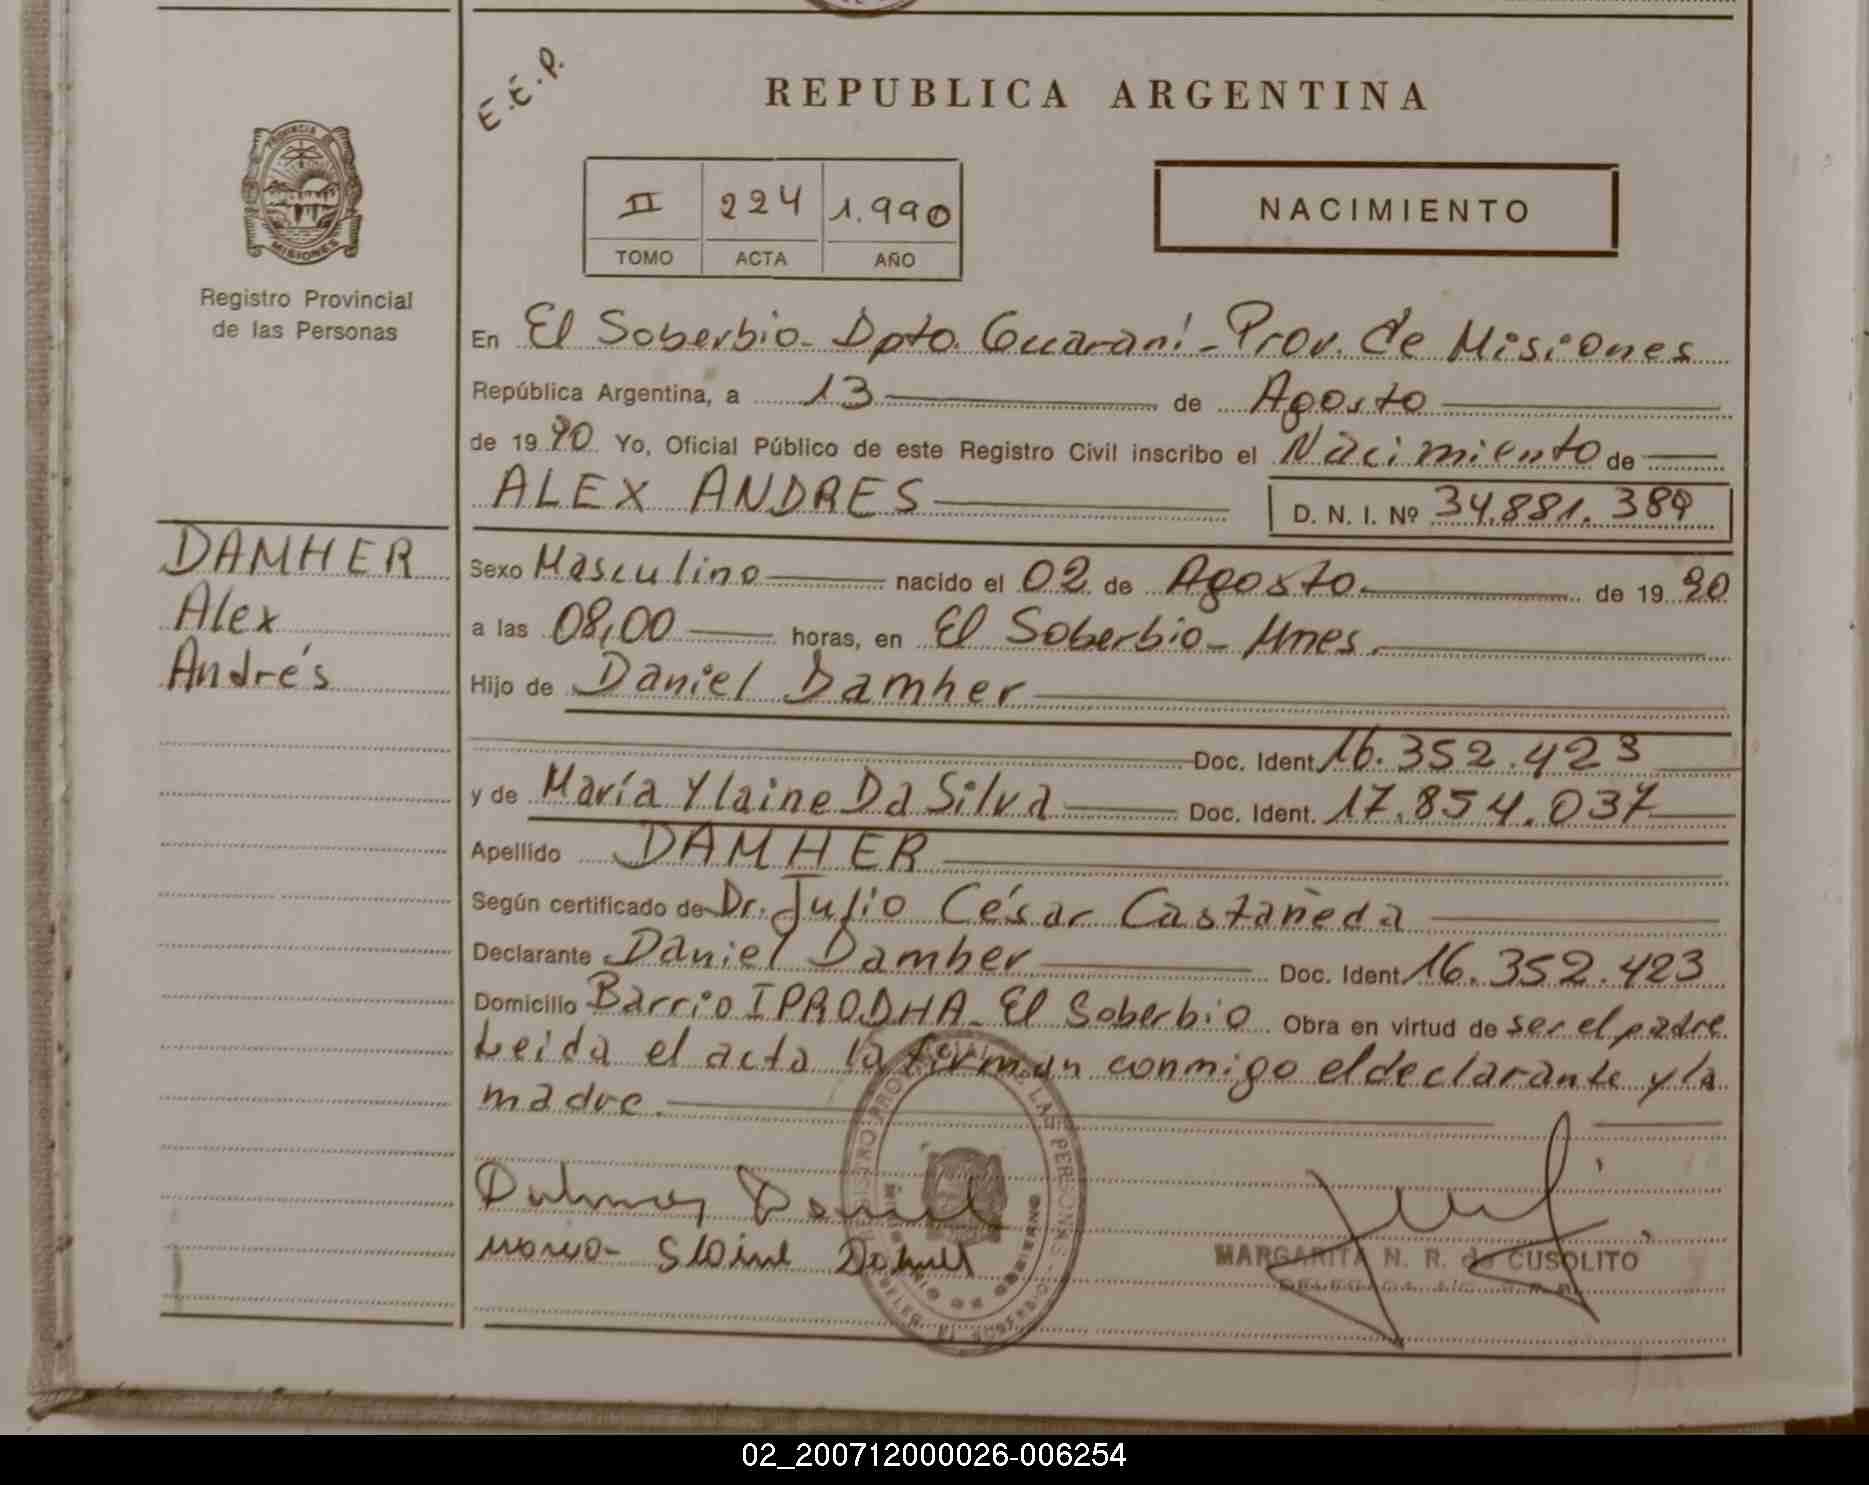 E.E.P.
REPUBLICA ARGENTINA
PROVINCIA DE
MISIONES
Registro Provincial
de las Personas
II 224 1.990
TOMO ACTA AÑO
NACIMIENTO
En El Soberbio - Dpto. Guaraní - Prov. de Misiones
República Argentina, a 13 de Agosto
de 19 90 Yo, Oficial Público de este Registro Civil inscribo el Nacimiento de
ALEX ANDRES D. N. I. Nº 34.881.389
DAMHER
Alex
Andrés
Sexo Masculino nacido el 02 de Agosto de 19 90
a las 08,00 horas, en El Soberbio - Mnes.
Hijo de Daniel Damher
Doc. Ident. 16.352.423
y de María Ylaine Da Silva Doc. Ident. 17.854.037
Apellido DAMHER
Según certificado de Dr. Julio César Castañeda
Declarante Daniel Damher Doc. Ident. 16.352.423
Domicilio Barrio IPRODHA - El Soberbio Obra en virtud de ser el padre
Leida el acta la firman conmigo el declarante y la
madre.
MARGARITA N. R. de CUSOLITO
02_200712000026-006254